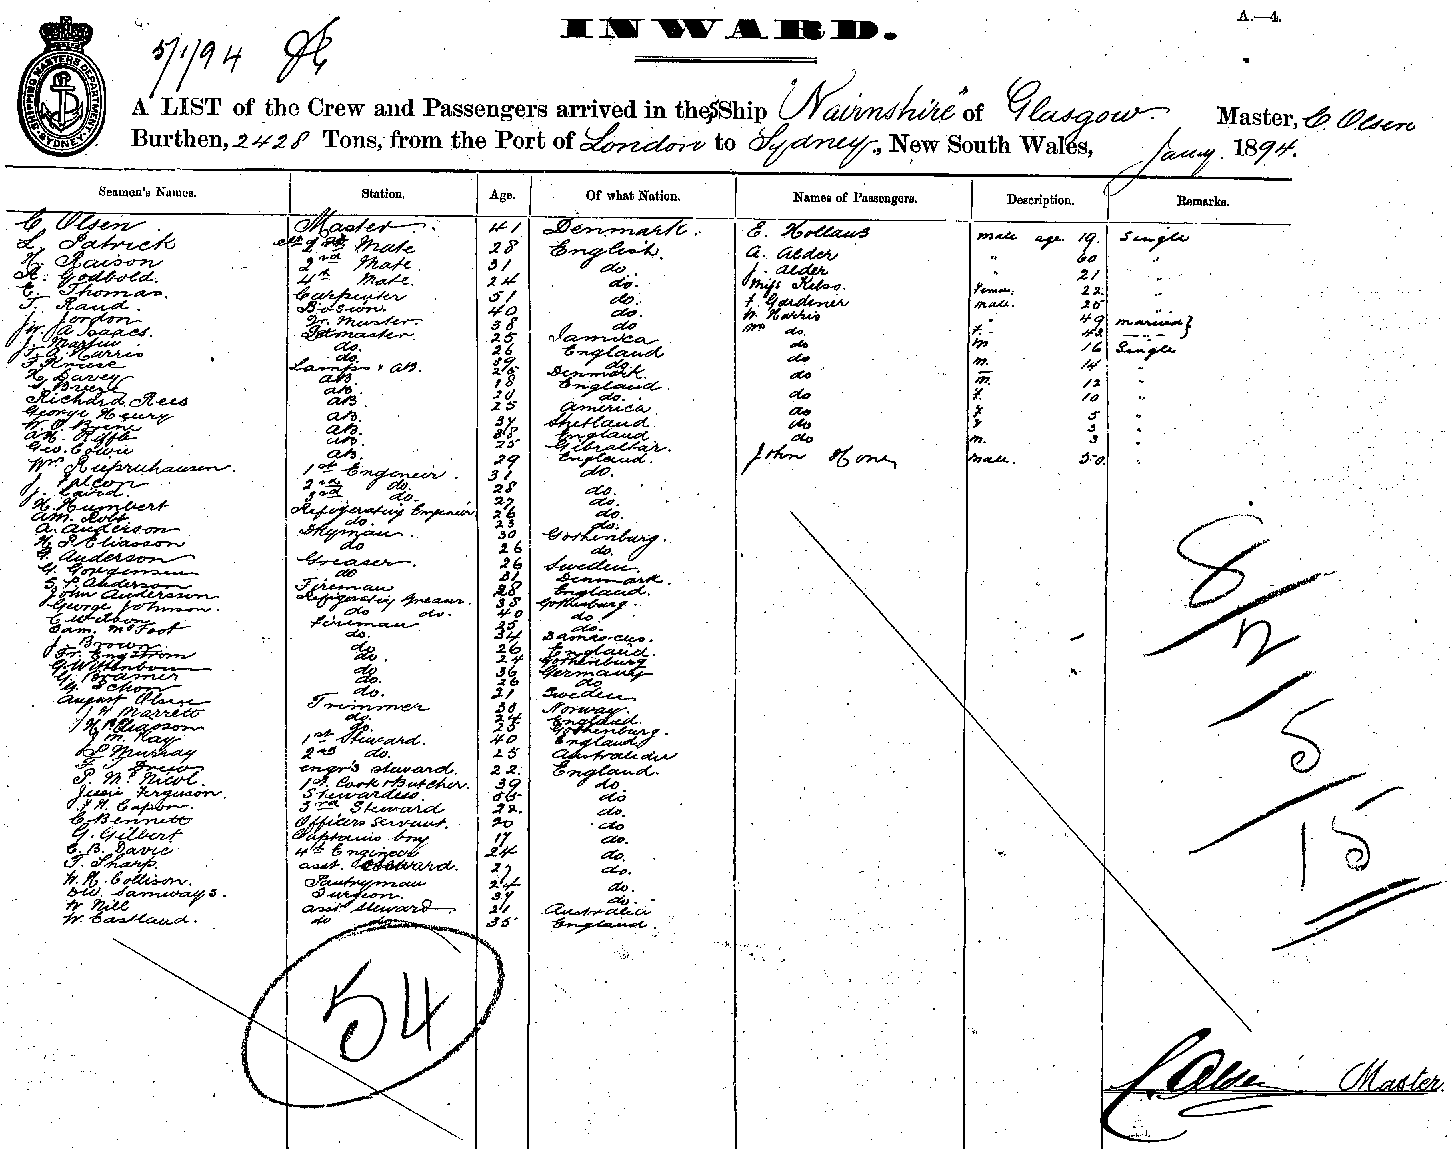 INWARD.
A.—4.
5/1/94
SHIPPING MASTERS DEPARTMENT SYDNEY
A LIST of the Crew and Passengers arrived in the S Ship "Nairnshire" of Glasgow. Master, C. Olsen
Burthen, 2428 Tons, from the Port of London to Sydney, New South Wales, Jany. 1894.
Seamen's Names. Station. Age. Of what Nation. Names of Passengers. Description. Remarks.
C Olsen Master 41 Denmark. E. Hollaus male age 19. Single
L. Patrick Mate 28 English. A. Alder " 60 "
H. Raison 2nd Mate 31 do J. Alder " 21 "
R. Godbold. 4th Mate 24 do. Miss Kelso. 22 "
E. Thomas. Carpenter 51 do. F. Gardener male. 25 "
T. Raud. Bosion 40 do. W Harris " 49 married }
J. Jordon Qr. Master. 38 do Mrs do. F. 43
Jw. A Isaacs. Qdmaster 25 Jamica do m 16 Single
J. Martin do. 26 England do m. 14 "
T. G. Harris do. 39 do do m. 12 "
T. Kruse Lamps & AB. 25 Denmark. do f. 10 "
H. Davey AB. 18 England do f 5 "
T. Breeze AB. 20 do. do f 3 "
Richard Rees AB. 25 America do m. 3 "
George Henry AB. 37 Shetland John Hone male. 50. "
AB. 38 England
AB. 25 Gibraltar.
Geo. Cowie AB. 29 England.
Wm 1st Engineer. 31 do.
J. 2nd do. 28 do.
J. Laird. 3rd do. 27 do.
H. Humbert Refrigerating Engineer 26 do.
do. 23 do.
A. Anderson 30 Gothenburg.
H. P. Eliasson do 26 do.
Anderson Greaser. 26 Sweden.
G. Gorgensen do 31 Denmark.
S. P. Anderson Fireman 28 England.
John Anderson Refrigerating Greaser. 38 Gothenburg.
George Johnson. do do. 40 do.
C Wilson Fireman 25 do.
Sam. McFoot do. 34 Damascus.
J. Brown do 26 England.
Fr. Engstrom do. 24 Gothenburg
G. Wittenborn do 36 Germany
G. Bramer do. 26 do
G. Schon do. 21 Sweden
August Olsen Trimmer 30 Norway.
J H Marrett do. 24 England.
do. 25 Gothenburg.
J. M. Kay 1st Steward. 40 England
S Murray 2nd do. 25 Australia
F. J. Drew engr's steward. 22 England.
P. Mc Nicol. 1st Cook & Butcher. 39 do.
Jessie Ferguson. Stewardess 55 do
J H. Capon. 3rd Steward 22. do.
C. Bennett Officers Servant. 20 do
G. Gilbert Captains boy 17 do.
C. B. Davie 4th Engineer 24 do.
T. Sharp. asst. Steward. 27 do.
W. H. Collison. Pantryman 24 do.
Samways. Surgeon. 37 do.
W Nill asst. steward 21 Australia
W. Eastland. do do 35 England.
54
8/
2
/
5/
15
C. Olsen Master.